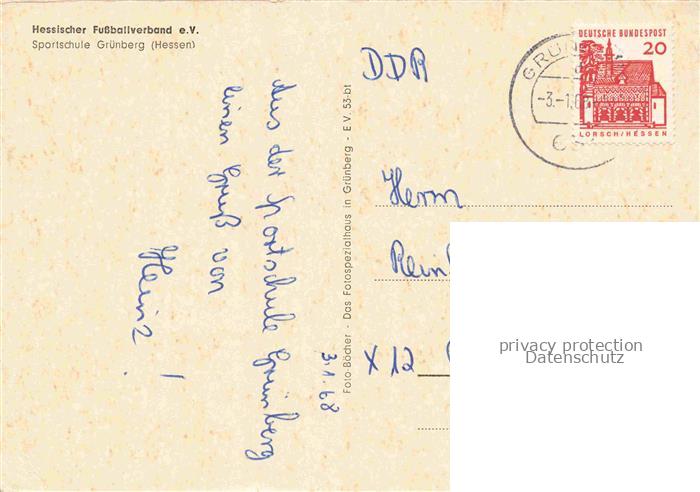 Hessischer Fußballverband e.V.
Sportschule Grünberg (Hessen)
Aus der Sportschule Grünberg
einen Gruß von
Heinz!
3.1.68
Foto-Böcher - Das Fotospezialhaus in Grünberg - E V. 53-bt
DDR
DEUTSCHE BUNDESPOST
20
LORSCH/HESSEN
-3.-1.6
Herrn
X 12
privacy protection
Datenschutz